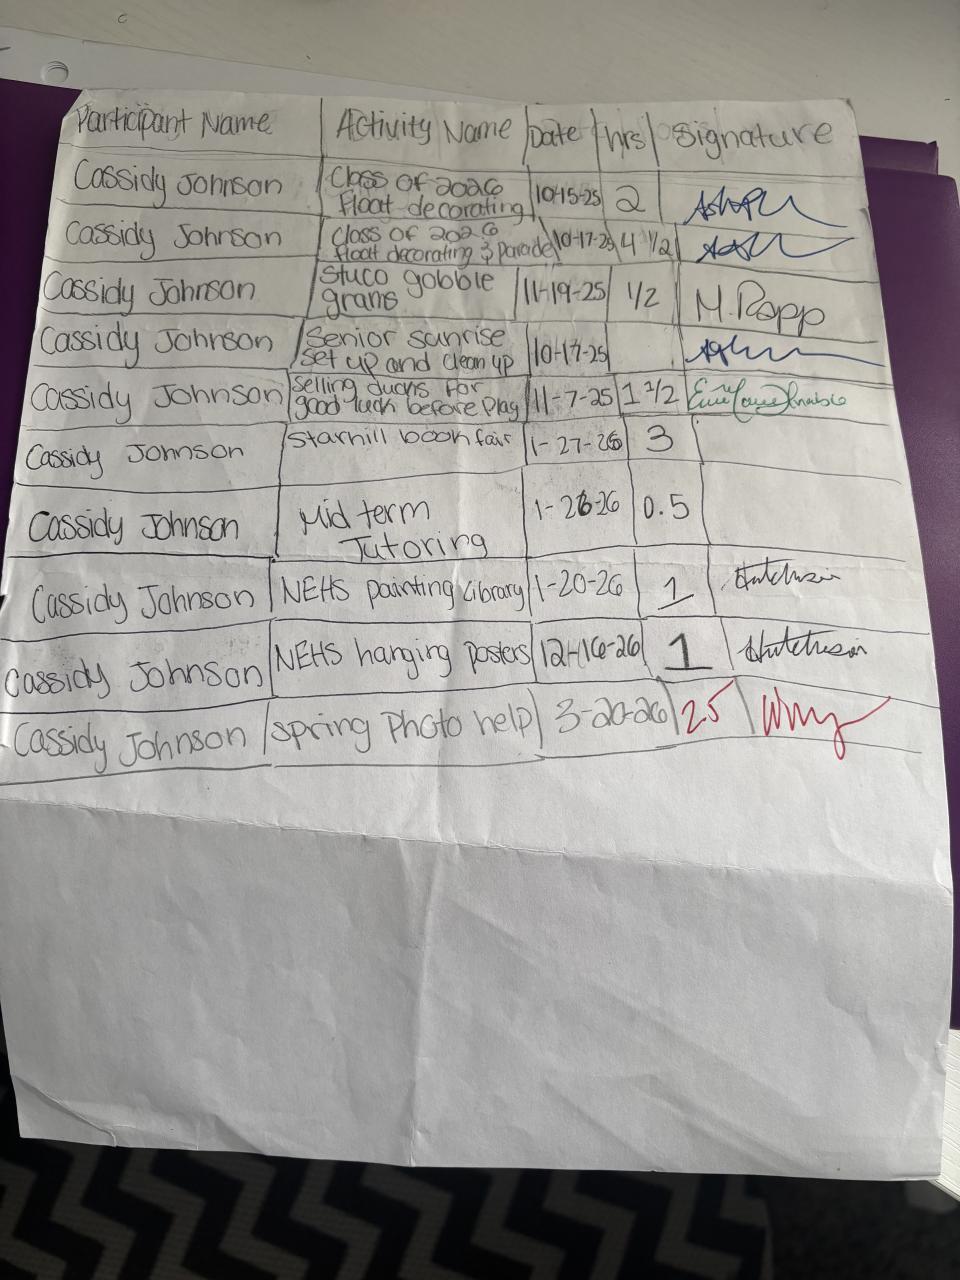 Participant Name Activity Name Date hrs Signature
Cassidy Johnson Class of 2026 float decorating 10-15-25 2
Cassidy Johnson Class of 2026 float decorating & Parade 10-17-25 4 1/2
Cassidy Johnson Stuco gobble grams 11-19-25 1/2 M. Rapp
Cassidy Johnson Senior sunrise set up and clean up 10-17-25
Cassidy Johnson Selling ducks for good luck before play 11-7-25 1 1/2
Cassidy Johnson Starhill book fair 1-27-26 3
Cassidy Johnson Mid term Tutoring 1-26-26 0.5
Cassidy Johnson NEHS painting Library 1-20-26 1 Hutchison
Cassidy Johnson NEHS hanging posters 12-16-26 1 Hutchison
Cassidy Johnson spring Photo help 3-20-26